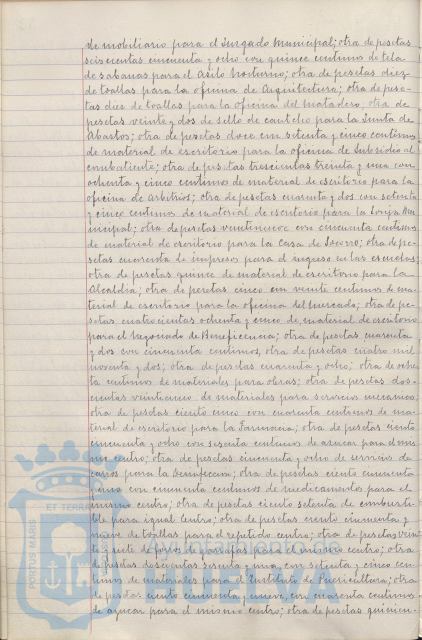 de mobiliario para el Juzgado Municipal; otra de pesetas
seiscientas cincuenta y ocho con quince centimos de tela
de sabanas para el Asilo Nocturno; otra de pesetas diez
de toallas para la oficina de Arquitectura; otra de pese-
tas diez de toallas para la oficina del Matadero, otra de
pesetas veinte y dos de sello de cautcho para la Junta de
Abastos; otra de pesetas doce con setenta y cinco centimos
de material de escritorio para la oficina de Subsidio al
combatiente; otra de pesetas trescientas treinta y una con
ochenta y cinco centimos de material de escritorio para la
oficina de Arbitrios; otra de pesetas cuarenta y dos con setenta
y cinco centimos de material de escritorio para la Lonja Mu-
nicipal; otra de pesetas veintinueve con cincuenta centimos
de material de escritorio para la Casa de Socorro; otra de pe-
setas cuarenta de impresos para el ropero en las escuelas;
otra de pesetas quince de material de escritorio para la
Alcaldia; otra de pesetas cinco con veinte centimos de ma-
terial de escritorio para la oficina del Mercado; otra de pe-
setas cuatrocientas ochenta y cinco de material de escritorio
para el Negociado de Beneficencia; otra de pesetas cuarenta
y dos con cincuenta centimos, otra de pesetas cuatro mil
noventa y dos; otra de pesetas cuarenta y ocho; otra de ochen
ta centimos de materiales para obras; otra de pesetas dos-
cientas veinticinco de materiales para servicios mecanicos;
otra de pesetas ciento cinco con cuarenta centimos de ma-
terial de escritorio para la Farmacia; otra de pesetas ciento
cincuenta y ocho con sesenta centimos de azucar para el mis
mo centro; otra de pesetas cincuenta y ocho de servicio de
carros para la Desinfeccion; otra de pesetas ciento cincuenta
con cincuenta centimos de medicamentos para el
mismo centro; otra de pesetas ciento setenta de combusti-
ble para igual centro; otra de pesetas ciento cincuenta y
nueve de toallas para el repetido centro; otra de pesetas vein
te y siete de forros de garrafas para el mismo centro; otra
de pesetas doscientas sesenta y una, con setenta y cinco cen-
timos de materiales para el Instituto de Puericultura; otra
de pesetas ciento cincuenta y nueve, con cuarenta centimos
de azucar para el mismo centro; otra de pesetas quinien-
PORTUS MARIS
ET TERRA